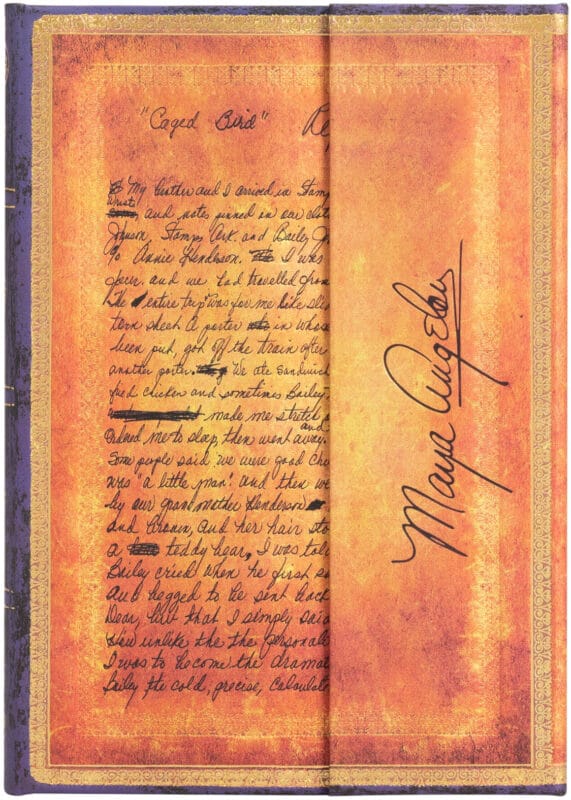 "Caged Bird" Re
My brother and I arrived in Stamp
wrists, and notes pinned on our clot
Johnson, Stamps, Ark. and Bailey Jo
% Annie Henderson. I was
fear, and we had travelled from
The entire trip was for me like slid
tern sheet. A porter in whose
been put, got off the train after
another porter. We ate sandwich
fried chicken and sometimes Bailey
made me stretch
and
Ordered me to sleep, then went away.
Some people said we were good chi
was "a little man" and then we
by our grandmother Henderson
and brown, and her hair sto
a teddy bear, I was tol
Bailey cried when he first s
and begged to be sent back
Dear, but that I simply said
How unlike the the personali
I was to become the dramat
Bailey the cold, precise, calculate
Maya Angelou